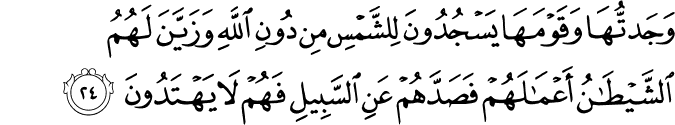 وَجَدتُّهَا وَقَوْمَهَا يَسْجُدُونَ لِلشَّمْسِ مِن دُونِ ٱللَّهِ وَزَيَّنَ لَهُمُ
ٱلشَّيْطَـٰنُ أَعْمَـٰلَهُمْ فَصَدَّهُمْ عَنِ ٱلسَّبِيلِ فَهُمْ لَا يَهْتَدُونَ ٢٤